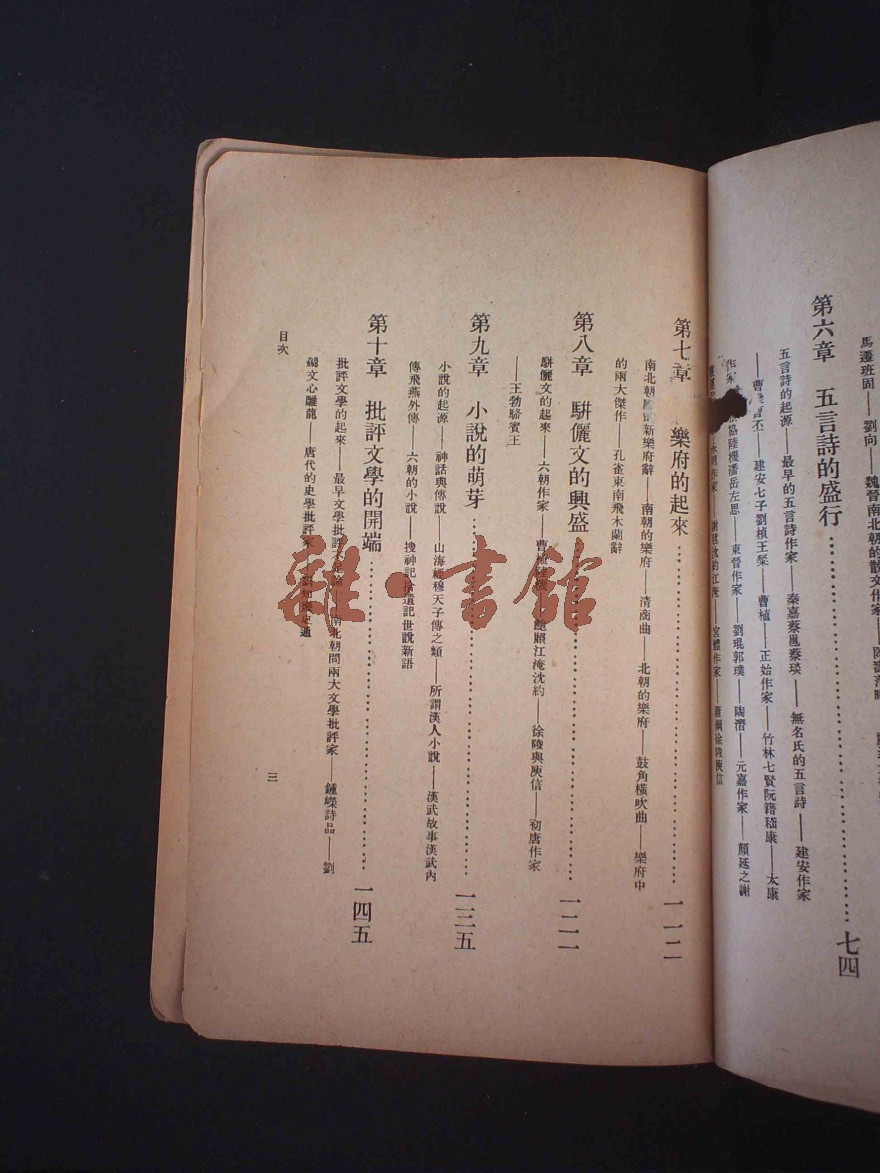 馬遷班固——劉向——魏晉南北朝的散文作家
第六章 五言詩的盛行 七四
五言詩的起源——最早的五言詩作家——秦嘉蔡邕蔡琰——無名氏的五言詩——建安作家
——曹丕——建安七子劉楨王粲——曹植——正始作家——竹林七賢阮籍嵇康——太康
作家 協陸機潘岳左思——東晉作家——劉琨郭璞——陶潛——元嘉作家——顏延之謝
永明作家 沈約江淹——宮體作家——蕭綱徐陵庾信
第七章 樂府的起來 一一二
南北朝 新樂府辭——南朝的樂府——清商曲——北朝的樂府——鼓角橫吹曲——樂府中
的兩大傑作——孔雀東南飛木蘭辭
第八章 駢儷文的興盛 一二一
駢儷文的起來——六朝作家——曹植 鮑照江淹沈約——徐陵與庾信——初唐作家
——王勃駱賓王
第九章 小說的萌芽 一三五
小說的起源——神話與傳說——山海經穆天子傳之類——所謂漢人小說——漢武故事漢武內
傳飛燕外傳——六朝的小說——搜神記拾遺記世說新語
第十章 批評文學的開端 一四五
批評文學的起來——最早文學批評 南北朝間兩大文學批評家——鍾嶸詩品——劉
勰文心雕龍——唐代的史學批評家 史通
目次
三
雜·書館